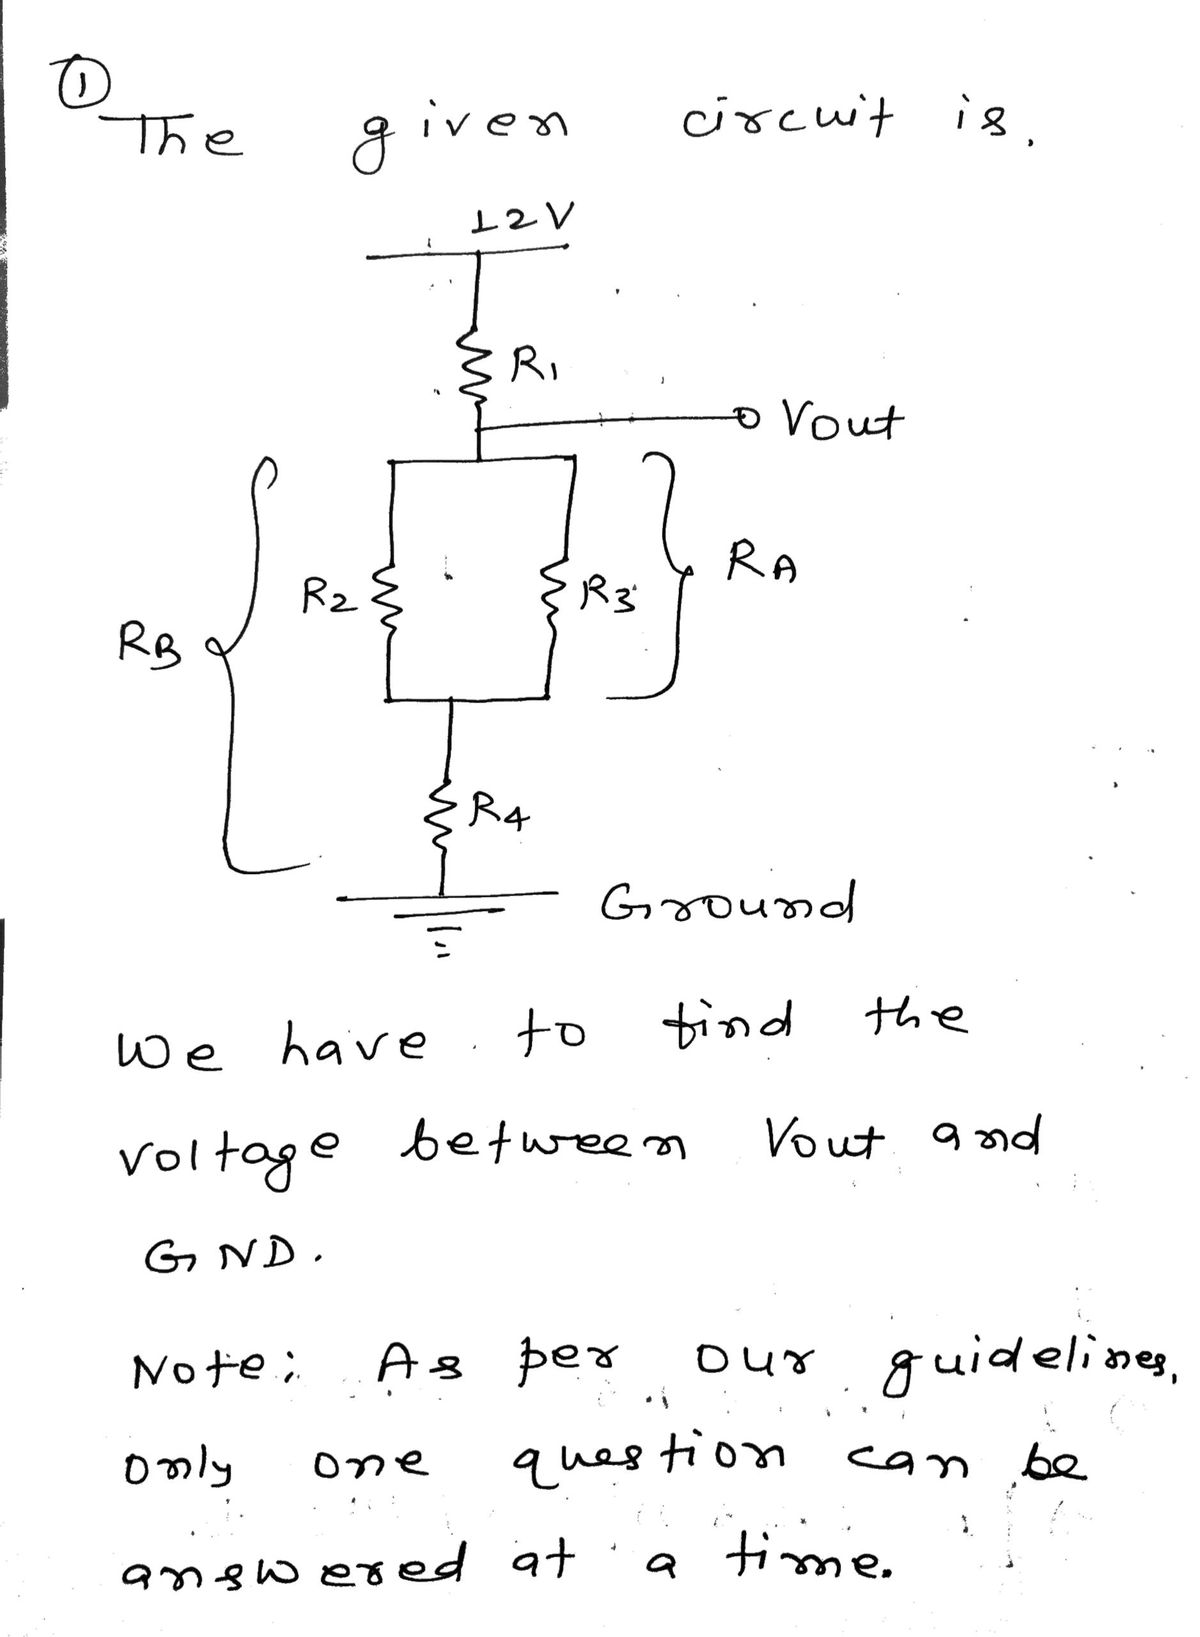 1
The given circuit is.
12V
R1
Vout
RA
R2
R3
RB
R4
Ground
We have to find the
voltage between Vout and
GND.
Note: As per our guidelines,
only one question can be
answered at a time.